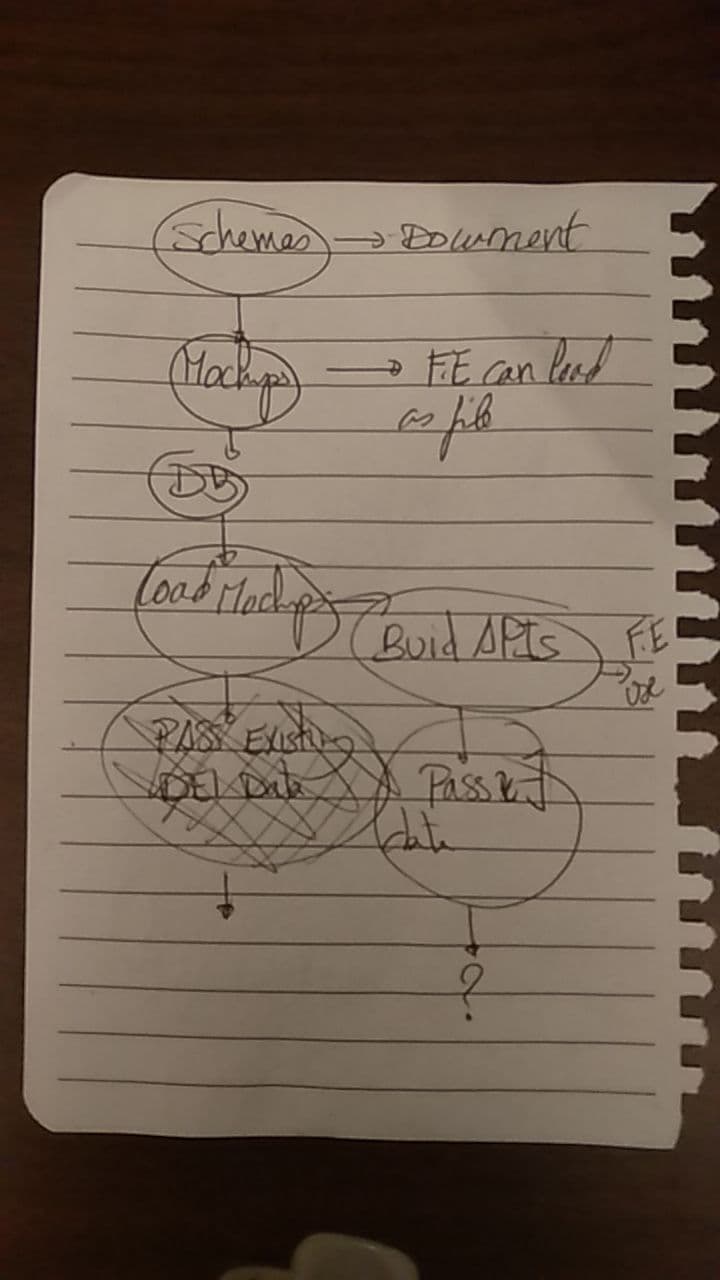 Schemas → Document
Mockups → F.E can load
as file
DB
Load Mockups
Buid APIs → F.E
use
PASS Existing
DEI Data
Pass
data
?